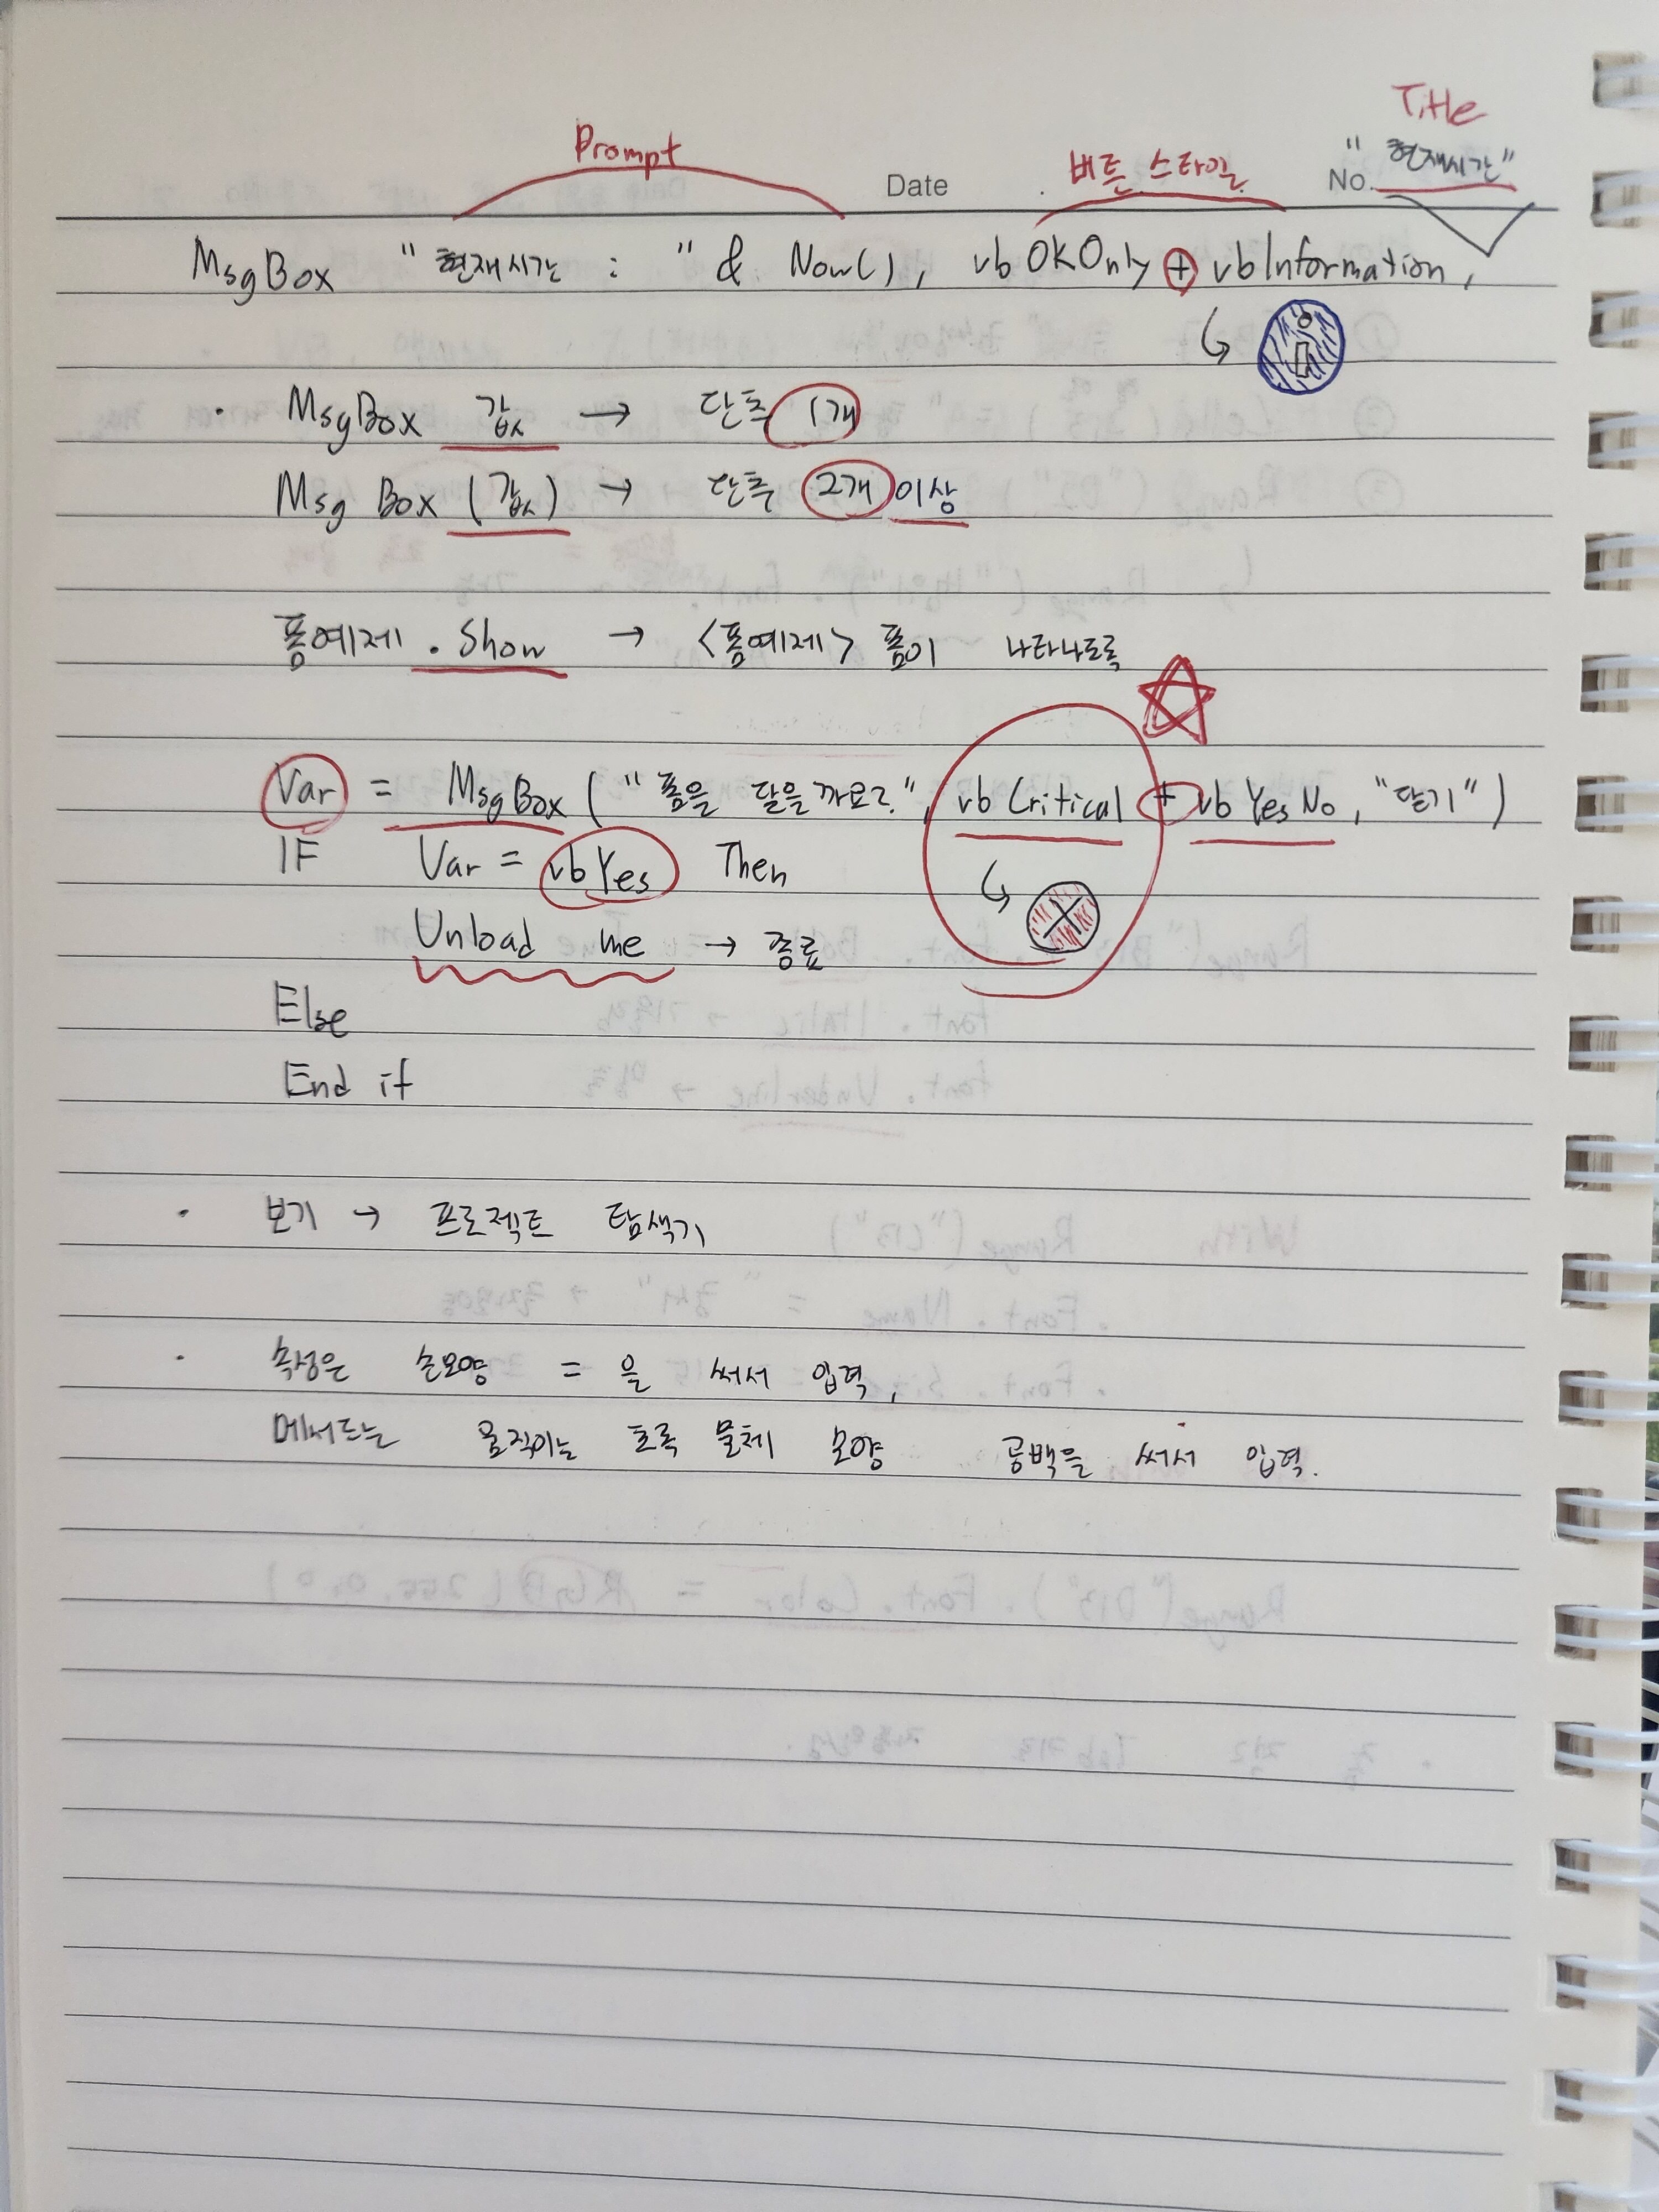 Title
Prompt
버튼 스타일
"현재시간"
Date
No.
MsgBox "현재시간 : " & Now(), vbOKOnly + vbInformation,
· MsgBox 값 → 단추 1개
MsgBox (값) → 단추 2개 이상
폼예제 .Show → <폼예제> 폼이 나타나도록
Var = MsgBox ("폼을 닫을까요?", vbCritical + vbYesNo, "닫기")
IF Var = vbYes Then
Unload me → 종료
Else
End if
· 보기 → 프로젝트 탐색기
· 속성은 손모양 = 을 써서 입력,
메서드는 움직이는 초록 물체 모양 공백을 써서 입력.